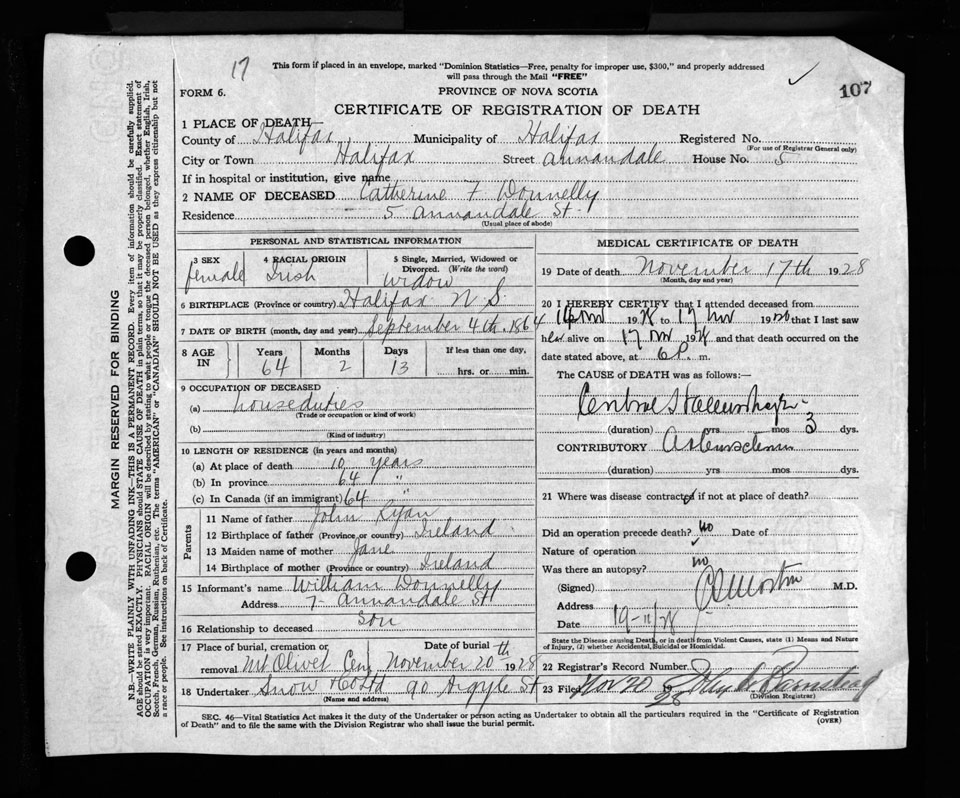 17
This form if placed in an envelope, marked "Dominion Statistics—Free, penalty for improper use, $300," and properly addressed
will pass through the Mail "FREE"
107
FORM 6.
PROVINCE OF NOVA SCOTIA
CERTIFICATE OF REGISTRATION OF DEATH
1 PLACE OF DEATH—
County of Halifax Municipality of Halifax Registered No.
(For use of Registrar General only)
City or Town Halifax Street Annandale House No. 5
If in hospital or institution, give name
2 NAME OF DECEASED Catherine F Donnelly
Residence 5 Annandale St.
(Usual place of abode)
PERSONAL AND STATISTICAL INFORMATION
3 SEX
female
4 RACIAL ORIGIN
Irish
5 Single, Married, Widowed or
Divorced. (Write the word)
Widow
6 BIRTHPLACE (Province or country) Halifax N.S.
7 DATE OF BIRTH (month, day and year) September 4th 1864
8 AGE IN
Years Months Days If less than one day,
64 2 13 hrs. or min.
9 OCCUPATION OF DECEASED
(a) houseduties
(Trade or occupation or kind of work)
(b)
(Kind of industry)
10 LENGTH OF RESIDENCE (in years and months)
(a) At place of death 10 years
(b) In province 64 "
(c) In Canada (if an immigrant) 64 "
Parents
11 Name of father John Ryan
12 Birthplace of father (Province or country) Ireland
13 Maiden name of mother Jane
14 Birthplace of mother (Province or country) Ireland
15 Informant's name William Donnelly
Address 7 Annandale St
16 Relationship to deceased son
17 Place of burial, cremation or
removal Mt Olivet Cem
Date of burial
November 20th 1928
18 Undertaker Snow & Co Ltd 90 Argyle St
(Name and address)
MEDICAL CERTIFICATE OF DEATH
19 Date of death November 17th 1928
(Month, day and year)
20 I HEREBY CERTIFY that I attended deceased from
1928 to 17 Nov 19 that I last saw
her alive on 17 Nov 1928 and that death occurred on the
date stated above, at 6 P. m.
The CAUSE of DEATH was as follows:—
(duration) yrs mos 3 dys.
CONTRIBUTORY
(duration) yrs mos dys.
21 Where was disease contracted if not at place of death?
Did an operation precede death? no Date of
Nature of operation
Was there an autopsy? no
(Signed) M.D.
Address
Date 19-11/28
State the Disease causing Death, or in death from Violent Causes, state (1) Means and Nature
of Injury, (2) whether Accidental, Suicidal or Homicidal.
22 Registrar's Record Number
23 Filed Nov 20 1928
(Division Registrar)
SEC. 46—Vital Statistics Act makes it the duty of the Undertaker or person acting as Undertaker to obtain all the particulars required in the "Certificate of Registration
of Death" and to file the same with the Division Registrar who shall issue the burial permit.
(OVER)
MARGIN RESERVED FOR BINDING
N.B.—WRITE PLAINLY WITH UNFADING INK—THIS IS A PERMANENT RECORD. Every item of information should be carefully supplied.
AGE should be stated EXACTLY. PHYSICIANS should STATE CAUSE OF DEATH in plain terms, so that it may be properly classified. Exact statement of
OCCUPATION is very important. RACIAL ORIGIN will be described by stating to what people or tongue the deceased person belonged, whether English, Irish,
Scotch, French, German, Russian, Ruthenian, etc. The terms "AMERICAN" or "CANADIAN" SHOULD NOT BE USED as they express citizenship but not
a race or people. See instructions on back of Certificate.